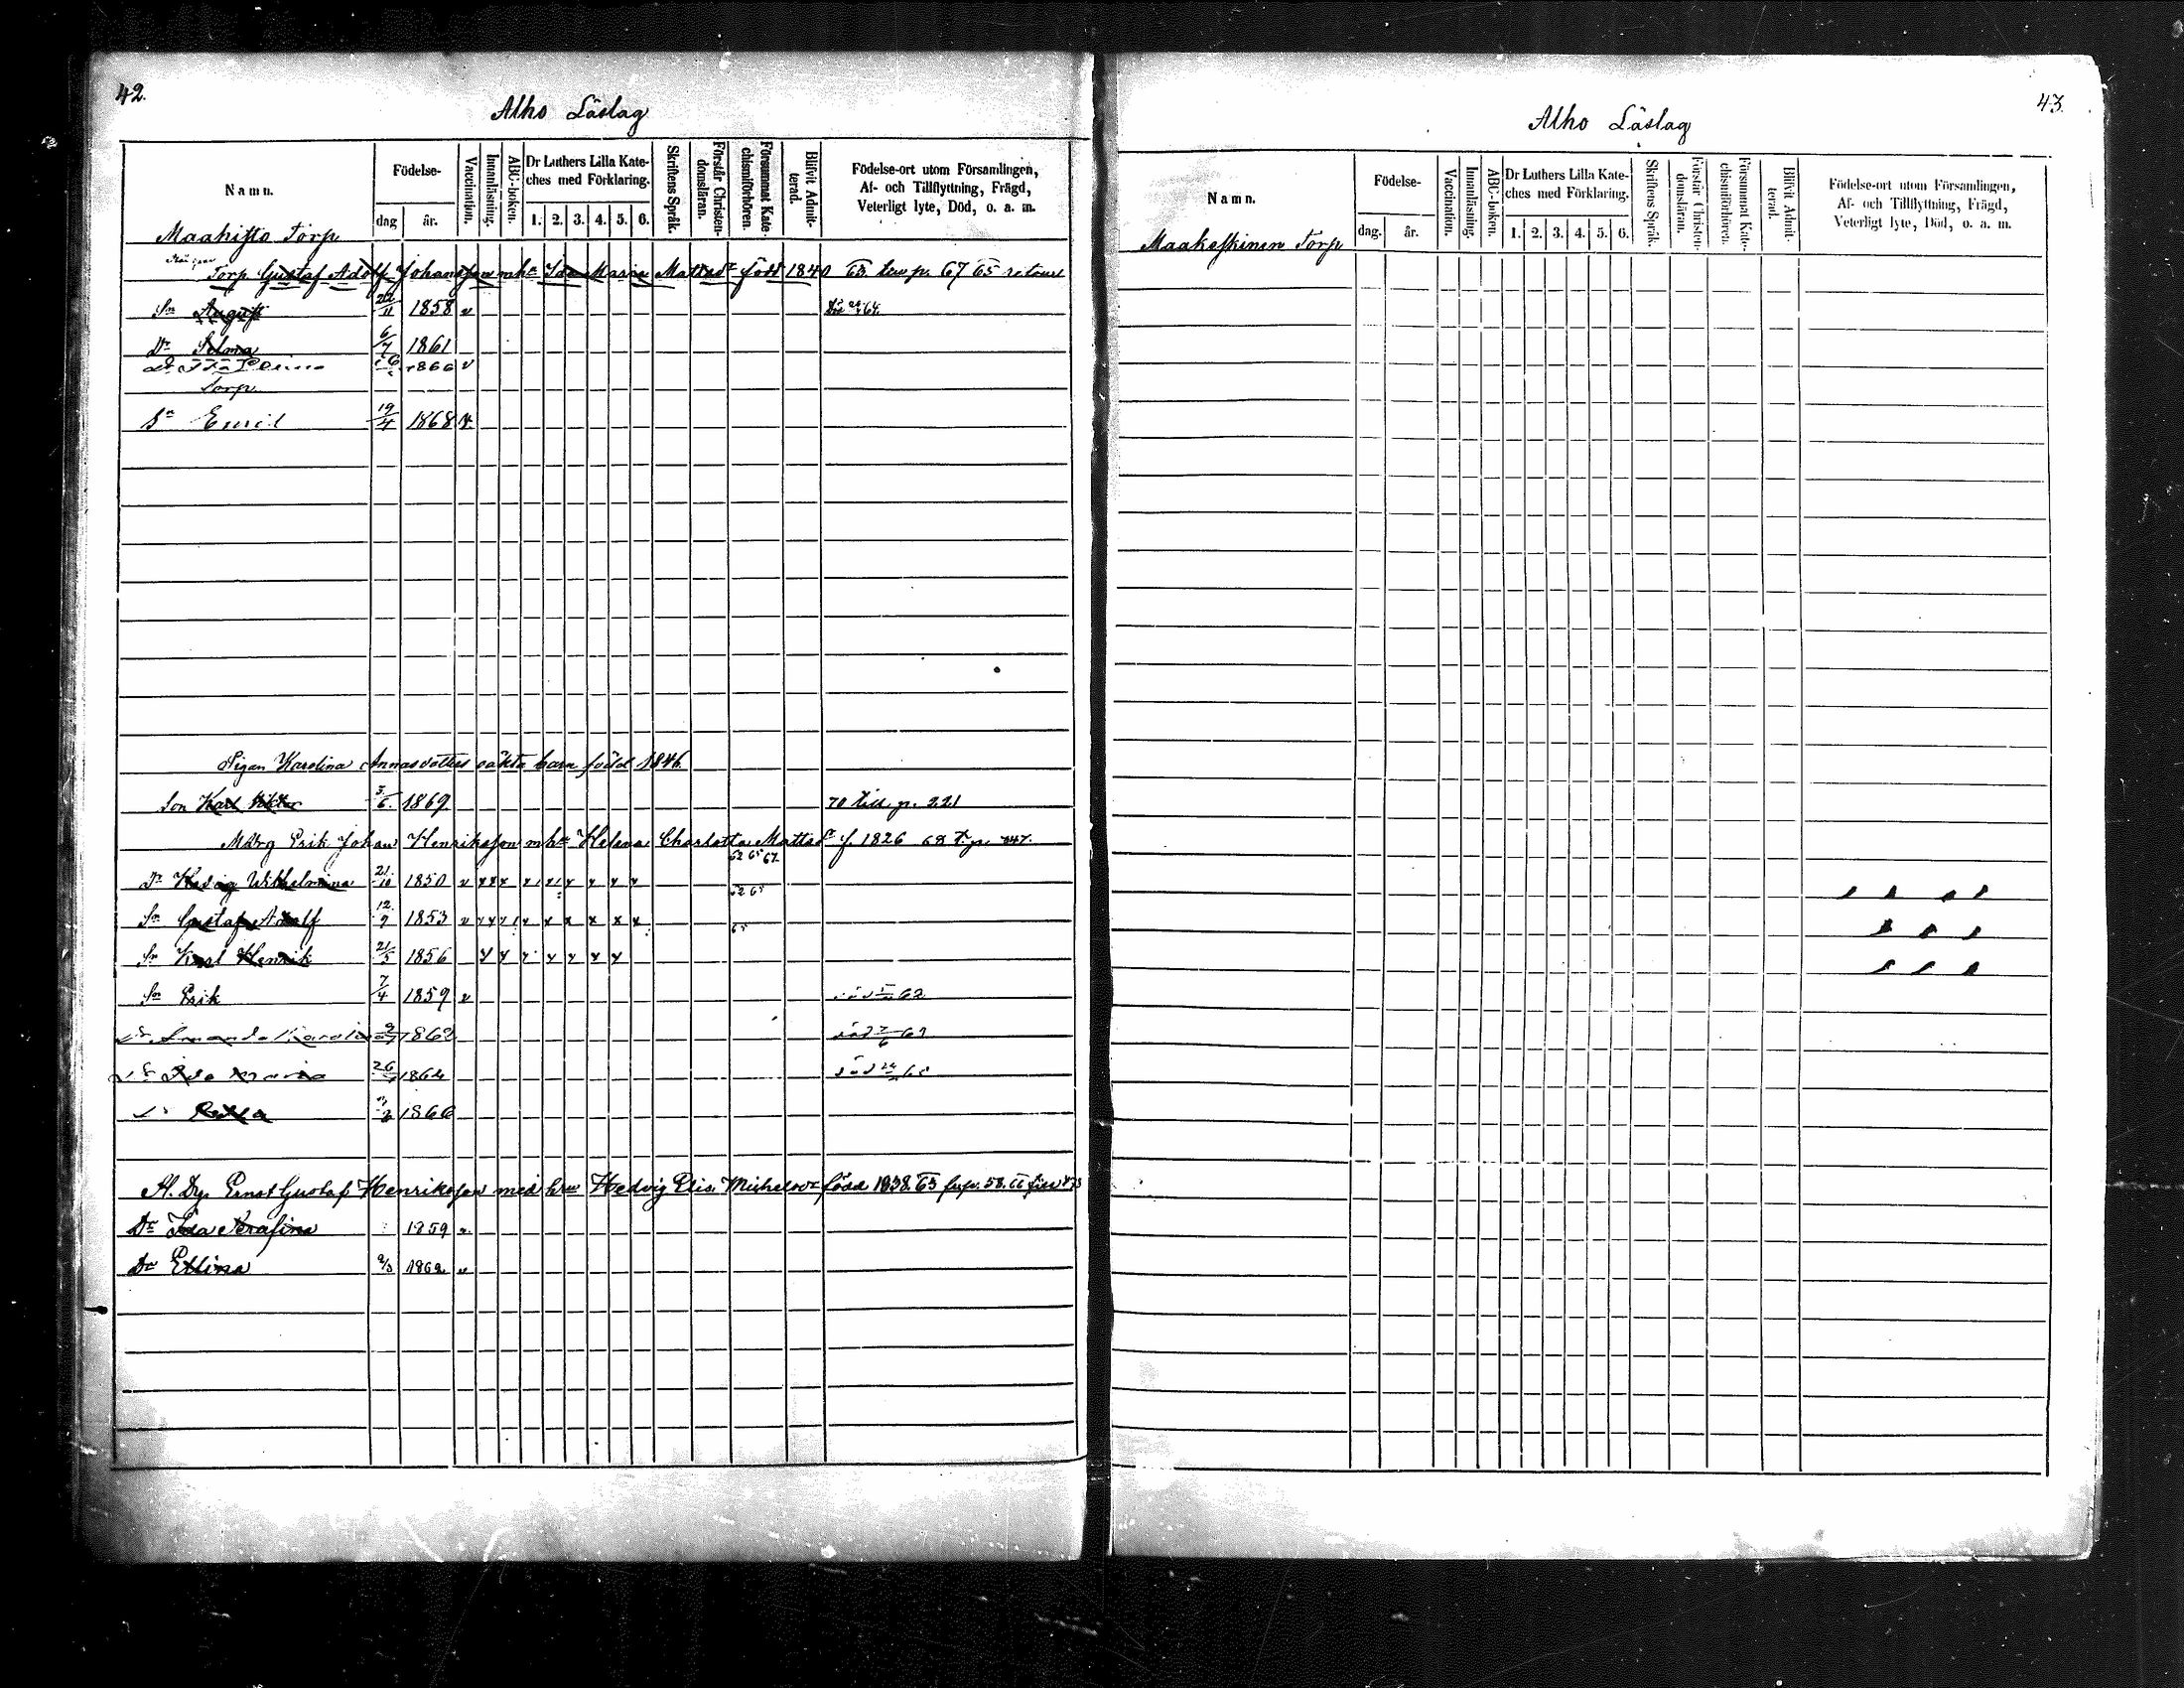 42.
Alho Läslag
Namn.
Födelse-
dag
år.
Vaccination.
Innanläsning.
ABC-boken.
Dr Luthers Lilla Kate-
ches med Förklaring.
1. 2. 3. 4. 5. 6.
Skriftens Språk.
Förstår Christen-
domsläran.
Försummat Kate-
chismiförhören.
Blifvit Admit-
terad.
Födelse-ort utom Församlingen,
Af- och Tillflyttning, Frägd,
Veterligt lyte, Död, o. a. m.
Maahisto Torp
Torp. Gustaf Adolf Johansson mhu Ida Maria Mattsdr född 1840 63. p. 67 65 retour
Sn August 22/11 1858 v 64.
Dr Selma 6/7 1861
Dr 1866 v
Torp.
Sn Emil 19/4 1868 v
Pigan Karolina Annasdotters oäkta barn född 1846.
Son Karl Viktor 3/6 1869 70 till p. 221
Måg Erik Johan Henriksson mhu Helena Charlotta Mattsdr f. 1826 68 t. p.
62 65 67.
Dr Hedvig Wilhelmina 21/10 1850 v x x x x x x x x x
62 65
Sn Gustaf Adolf 12/9 1853 v x x x x x x x x x
65
Sn Karl Henrik 21/5 1856 x x x x x x x
Sn Erik 7/4 1859 v död 62
Dr Amanda Karolina 1862 död 7/6 63
Dr Ida Maria 26 1864 död
1866
Ernst Gustaf Henriksson med hru Hedvig Elis. Michelsdr född 1838. 63 fr. p. 58.
Dr Ida Serafina 1859 v
Dr Ellina 9/3 1862 v
43.
Alho Läslag
Namn.
Födelse-
dag.
år.
Vaccination.
Innanläsning.
ABC-boken.
Dr Luthers Lilla Kate-
ches med Förklaring.
1. 2. 3. 4. 5. 6.
Skriftens Språk.
Förstår Christen-
domsläran.
Försummat Kate-
chismiförhören.
Blifvit Admit-
terad.
Födelse-ort utom Församlingen,
Af- och Tillflyttning, Frägd,
Veterligt lyte, Död, o. a. m.
Maakeskinen Torp